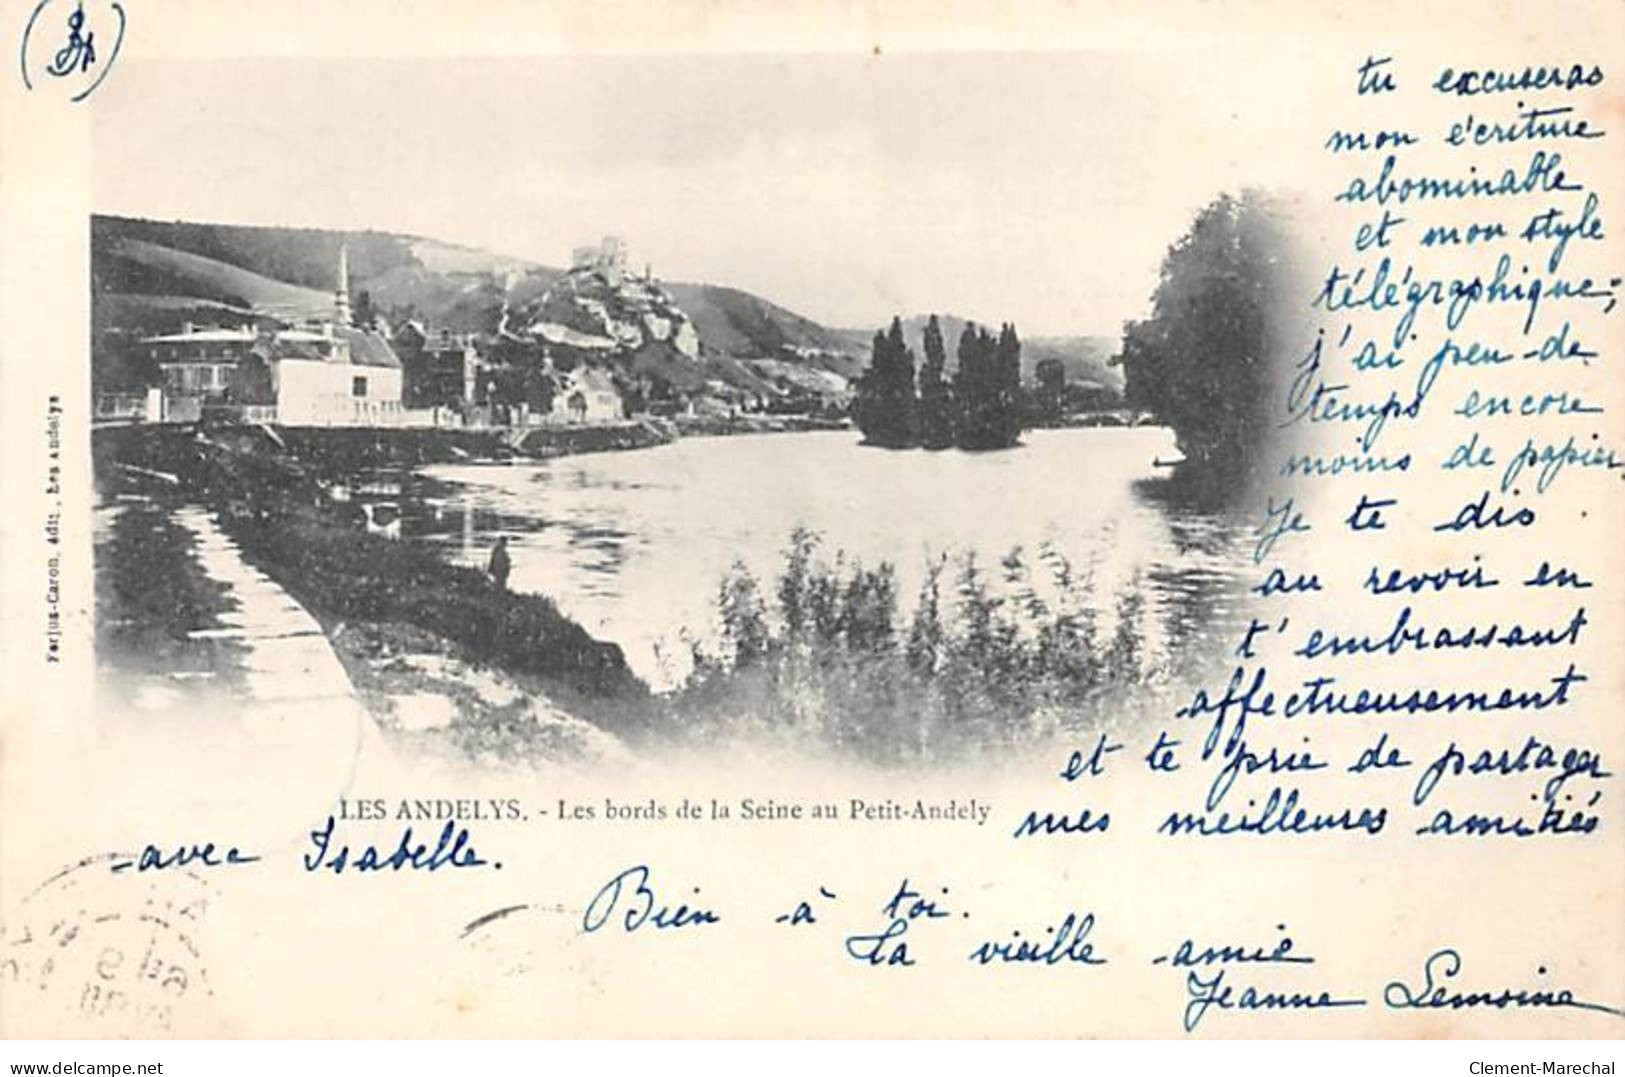 tu excuseras
mon écriture
abominable
et mon style
télégraphique;
j'ai peu de
temps encore
moins de papier.
Je te dis
au revoir en
t'embrassant
affectueusement
et te prie de partager
mes meilleures amitiés
avec Isabelle.
Bien à toi.
La vieille amie
Jeanne Lemoine
LES ANDELYS. - Les bords de la Seine au Petit-Andely
Farjus-Caron, édit., Les Andelys
delcampe.net
Clement-Marechal